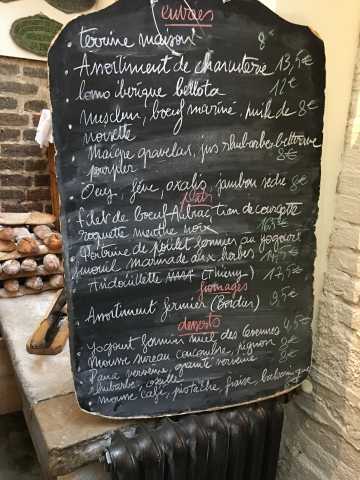 entrées
terrine maison 8€
Assortiment de charcuterie 13,5€
lomo ibérique bellota 12€
Mesclun, boeuf mariné, huile de 8€
noisette
Maigre gravelax, jus rhubarbe betterave
pourpier 8€
Oeuf, fève, oxalis, jambon sèche 8€
plats
filet de boeuf Aubrac, tian de courgette
roquette menthe noix 16,5€
Poitrine de poulet fermier au yogourt
marinade aux herbes 14,5€
Andouillette (Thierry) 17,5€
fromages
Assortiment fermier (Bordier) 9,5€
desserts
yogourt fermier miel des Cévennes
mousse concombre, pignon 8€
Pana verveine, granité verveine 8€
rhubarbe, oseille 8€
mousse café, pistache, fraise